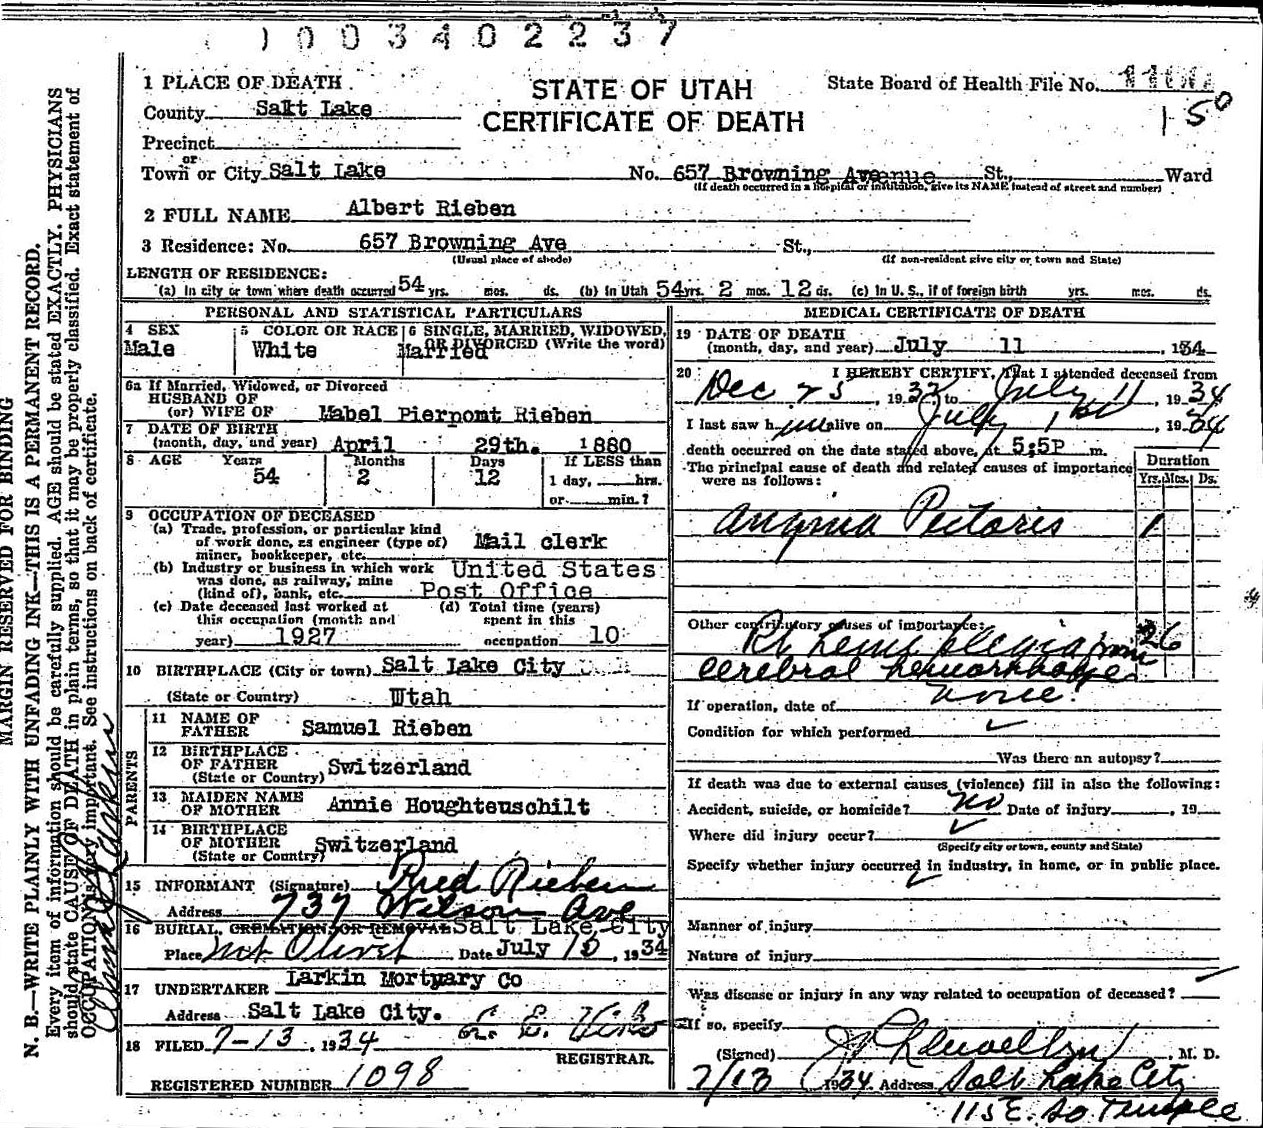 1003402237
1 PLACE OF DEATH
STATE OF UTAH
CERTIFICATE OF DEATH
State Board of Health File No.
1 50
County Salt Lake
Precinct
or
Town or City Salt Lake No. 657 Browning Avenue St., Ward
(If death occurred in a hospital or institution, give its NAME instead of street and number)
2 FULL NAME Albert Rieben
3 Residence: No. 657 Browning Ave St.,
(Usual place of abode) (If non-resident give city or town and State)
LENGTH OF RESIDENCE:
(a) In city or town where death occurred 54 yrs. mos. ds. (b) In Utah 54 yrs. 2 mos. 12 ds. (c) In U. S., if of foreign birth yrs. mos. ds.
PERSONAL AND STATISTICAL PARTICULARS
4 SEX
Male
5 COLOR OR RACE
White
6 SINGLE, MARRIED, WIDOWED,
OR DIVORCED (Write the word)
Married
6a If Married, Widowed, or Divorced
HUSBAND OF
(or) WIFE OF Mabel Pierpont Rieben
7 DATE OF BIRTH
(month, day, and year) April 29th. 1880
8 AGE Years Months Days If LESS than
54 2 12 1 day, hrs.
or min.?
9 OCCUPATION OF DECEASED
(a) Trade, profession, or particular kind
of work done, as engineer (type of)
miner, bookkeeper, etc. Mail clerk
(b) Industry or business in which work
was done, as railway, mine
(kind of), bank, etc. United States
Post Office
(c) Date deceased last worked at
this occupation (month and
year) 1927
(d) Total time (years)
spent in this
occupation 10
10 BIRTHPLACE (City or town) Salt Lake City
(State or Country) Utah
PARENTS
11 NAME OF
FATHER Samuel Rieben
12 BIRTHPLACE
OF FATHER
(State or Country) Switzerland
13 MAIDEN NAME
OF MOTHER Annie Houghteuschilt
14 BIRTHPLACE
OF MOTHER
(State or Country) Switzerland
15 INFORMANT (Signature) Fred Rieben
Address 737 Wilson Ave
16 BURIAL, CREMATION, OR REMOVAL Salt Lake City
Place Mt Olivet Date July 15, 1934
17 UNDERTAKER Larkin Mortuary Co
Address Salt Lake City.
18 FILED 7-13, 1934
REGISTRAR.
REGISTERED NUMBER 1098
MEDICAL CERTIFICATE OF DEATH
19 DATE OF DEATH
(month, day, and year) July 11, 1934
20 I HEREBY CERTIFY, That I attended deceased from
Dec 25, 1933 to July 11, 1934
I last saw him alive on July 1st, 1934
death occurred on the date stated above, at 5:5P m.
The principal cause of death and related causes of importance
were as follows:
Duration
Yrs. Mos. Ds.
Angina Pectoris 1
Other contributory causes of importance:
Rt hemiplegia from 26
cerebral hemorrhage
If operation, date of none
Condition for which performed
Was there an autopsy?
If death was due to external causes (violence) fill in also the following:
Accident, suicide, or homicide? no Date of injury, 19
Where did injury occur?
(Specify city or town, county and State)
Specify whether injury occurred in industry, in home, or in public place.
Manner of injury
Nature of injury
Was disease or injury in any way related to occupation of deceased?
If so, specify
(Signed) Llewellyn, M. D.
7/13 1934 Address Salt Lake City
115 E. So Temple
MARGIN RESERVED FOR BINDING
N. B.—WRITE PLAINLY WITH UNFADING INK—THIS IS A PERMANENT RECORD.
Every item of information should be carefully supplied. AGE should be stated EXACTLY. PHYSICIANS
should state CAUSE OF DEATH in plain terms, so that it may be properly classified. Exact statement of
OCCUPATION is very important. See instructions on back of certificate.